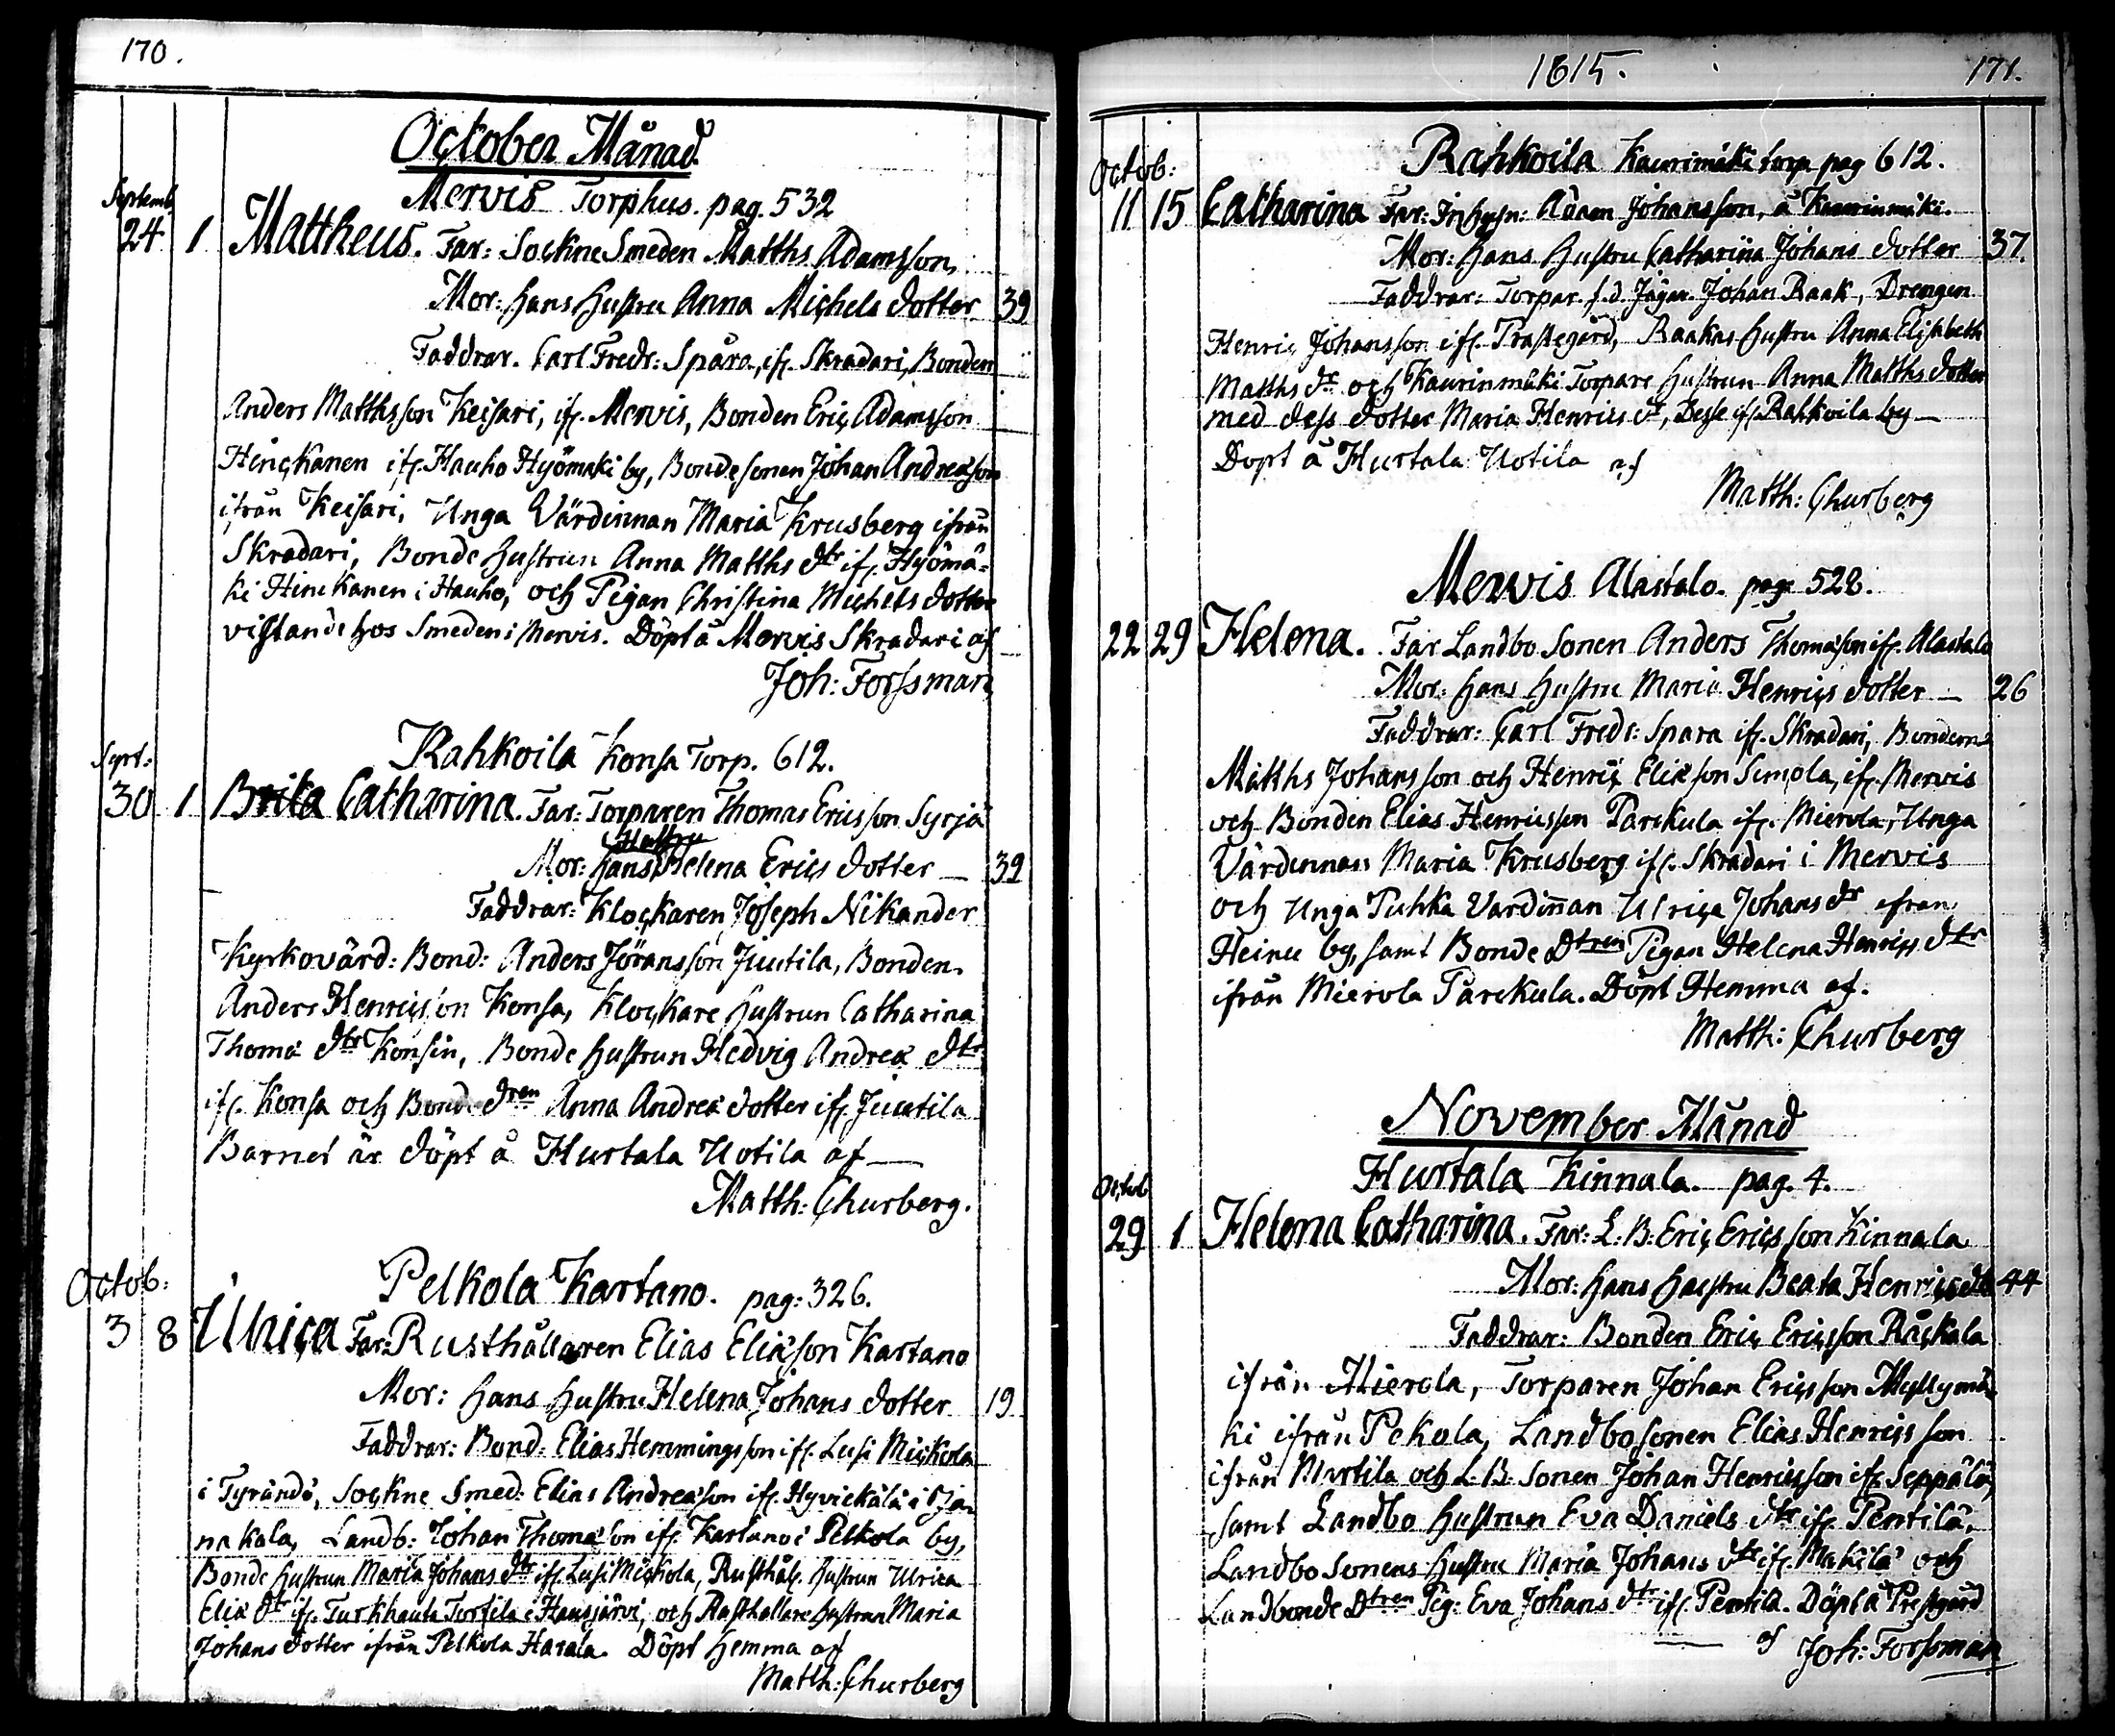 170.
October Månad.
Septemb.
Mervis Torphus. pag. 532
24 1 Mattheus. Far: Sockne Smeden Matths Adamsson,
Mor: hans hustru Anna Michels dotter 39
Faddrar. Carl Fredr: Spåra, ifr. Skradari, Bonden
Anders Matthsson Keisari, ifr. Mervis, Bonden Eric Adamsson
Hinckanen ifr. Hauho Hyömäki by, Bondesonen Johan Andreæson
ifrån Keisari, Unga Värdinnan Maria Krusberg ifrån
Skradari, Bonde hustrun Anna Matths dtr ifr. Hyömä-
ki Hinckanen i Hauho, och Pigan Christina Michels dotter
vistande hos Smeden i Mervis. Döpt å Mervis Skradari af
Joh: Forssman
Rahkoila Konsa Torp. 612.
Sept:
30 1 Brita Catharina. Far: Torparen Thomas Ericsson Syrjä
Hustru
Mor: hans Helena Erics dotter — 39
Faddrar: Klockaren Joseph Nikander
Kyrkovärd: Bond: Anders Jöransson Juutila, Bonden
Anders Henricsson Konsa, Klockare hustrun Catharina
Thomæ dtr Konsin, Bonde hustrun Hedvig Andreæ dtr
ifr. Konsa och Bonde dtren Anna Andreæ dotter ifr. Juutila
Barnet är döpt å Hurtala Uotila af —
Matth: Churberg.
Pelkola Kartano. pag: 326.
Octob:
3 8 Ulrica Far: Rusthållaren Elias Eliæson Kartano
Mor: hans hustru Helena Johans dotter 19
Faddrar: Bond: Elias Hemmingsson ifr. Lusi Mickola
i Tyrändö, Sockne Smed: Elias Andreæson ifr. Hyvickälä i Ja-
nakala, Landb: Johan Thomæson ifr. Kartano i Pelkola by,
Bonde hustrun Maria Johans dtr ifr. Lusi Mickola, Rusthåls hustrun Ulrica
Eliæ dtr ifr. Turkhauta Torfila i Hausjärvi, och Rusthållare hustrun Maria
Johans dotter ifrån Pelkola Harala. Döpt hemma af
Matth: Churberg
1815.
171.
Rahkoila Kaurimäki torp pag 612.
Octob:
11 15 Catharina Far: Inhysn: Adam Johansson, å Kaurinmäki.
Mor: hans hustru Catharina Johans dotter 37.
Faddrar: Torpar. f.d. Jägar. Johan Raak, Drengen
Henric Johansson ifr. Prastegård, Raakas hustru Anna Elisabeth
Matths dr och Kaurinmäki Torpare hustrun Anna Matths dotter
med dess dotter Maria Henrics dr, Desse ifr. Rahkoila by —
Döpt å Hurtala Uotila af
Matth: Churberg
Mervis Alastalo. pag. 528.
22 29 Helena. Far Landbo Sonen Anders Thomæson ifr. Alastalo
Mor: hans hustru Maria Henrics dotter — 26
Faddrar: Carl Fredr: Spara ifr. Skradari, Bonderne
Matths Johansson och Henric Eliæson Simola, ifr. Mervis
och Bonden Elias Henricsson Parckula ifr. Mierola, Unga
Värdinnan Maria Krusberg ifr. Skradari i Mervis
och Unga Puhka Vardinnan Ulrica Johans dr ifrån
Heinu by, samt Bonde Dtren Pigan Helena Henrics dtr
ifrån Mierola Parckula. Döpt Hemma af.
Matth: Churberg
November Månad
Hurtala Kinnala. pag. 4.
Octob
29 1 Helena Catharina. Far: L: B: Eric Ericsson Kinnala
Mor: hans hustru Beata Henrics dtr 44
Faddrar: Bonden Eric Ericsson Råckala
ifrån Mierola, Torparen Johan Ericsson Myllymä-
ki ifrån Pekola, Landbosonen Elias Henricsson
ifrån Martila och L: B: Sonen Johan Henricsson ifr. Seppälä,
samt Landbo hustrun Eva Daniels dtr ifr. Pentilä,
Landbo Sonens hustru Maria Johans dtr ifr. Makilä och
Landbonde Dtren Pig: Eva Johans dtr ifr. Pentila. Döpt å Prestgård
af Joh: Forssman